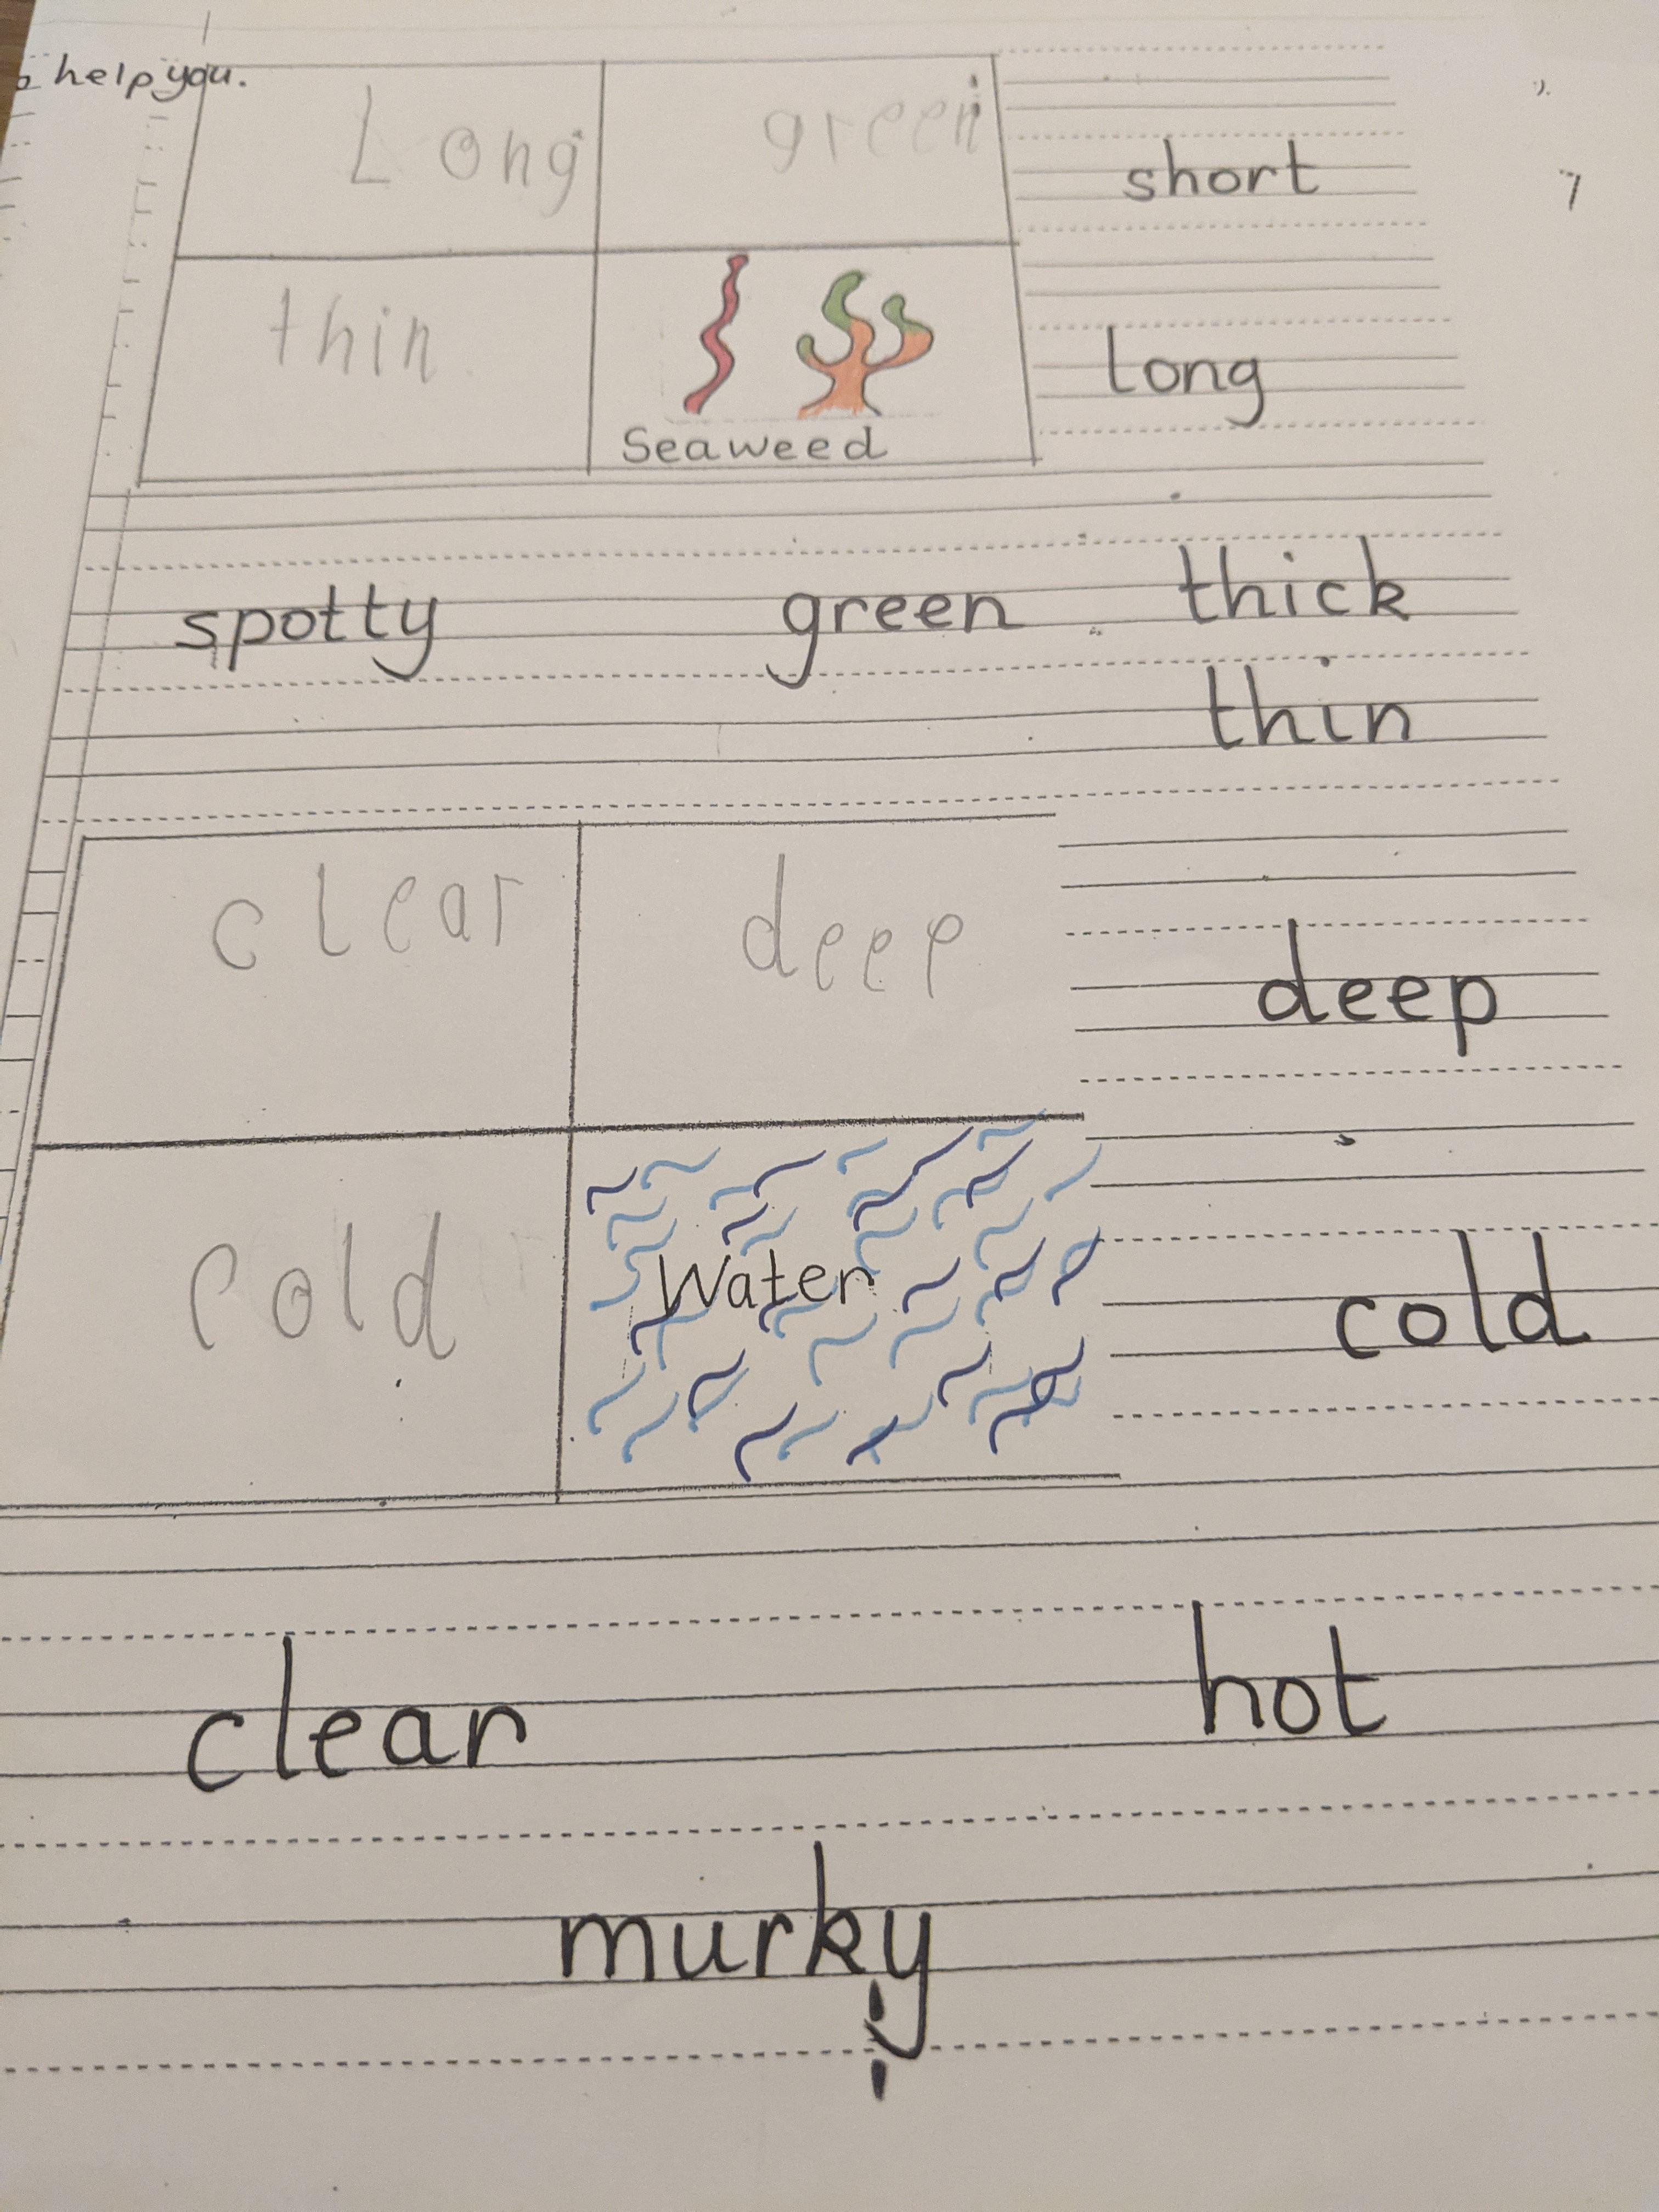 help you.
Long green
short
thin
long
Seaweed
spotty green thick
thin
clear deep
deep
cold Water
cold
clear hot
murky